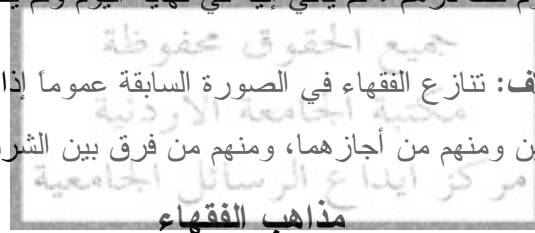 جميع الحقوق محفوظة
ف: تنازع الفقهاء في الصورة السابقة عموماً إذا
مكتبة الجامعة الاردنية
ين ومنهم من أجازهما، ومنهم من فرق بين الشر
مركز ايداع الرسائل الجامعية
مذاهب الفقهاء